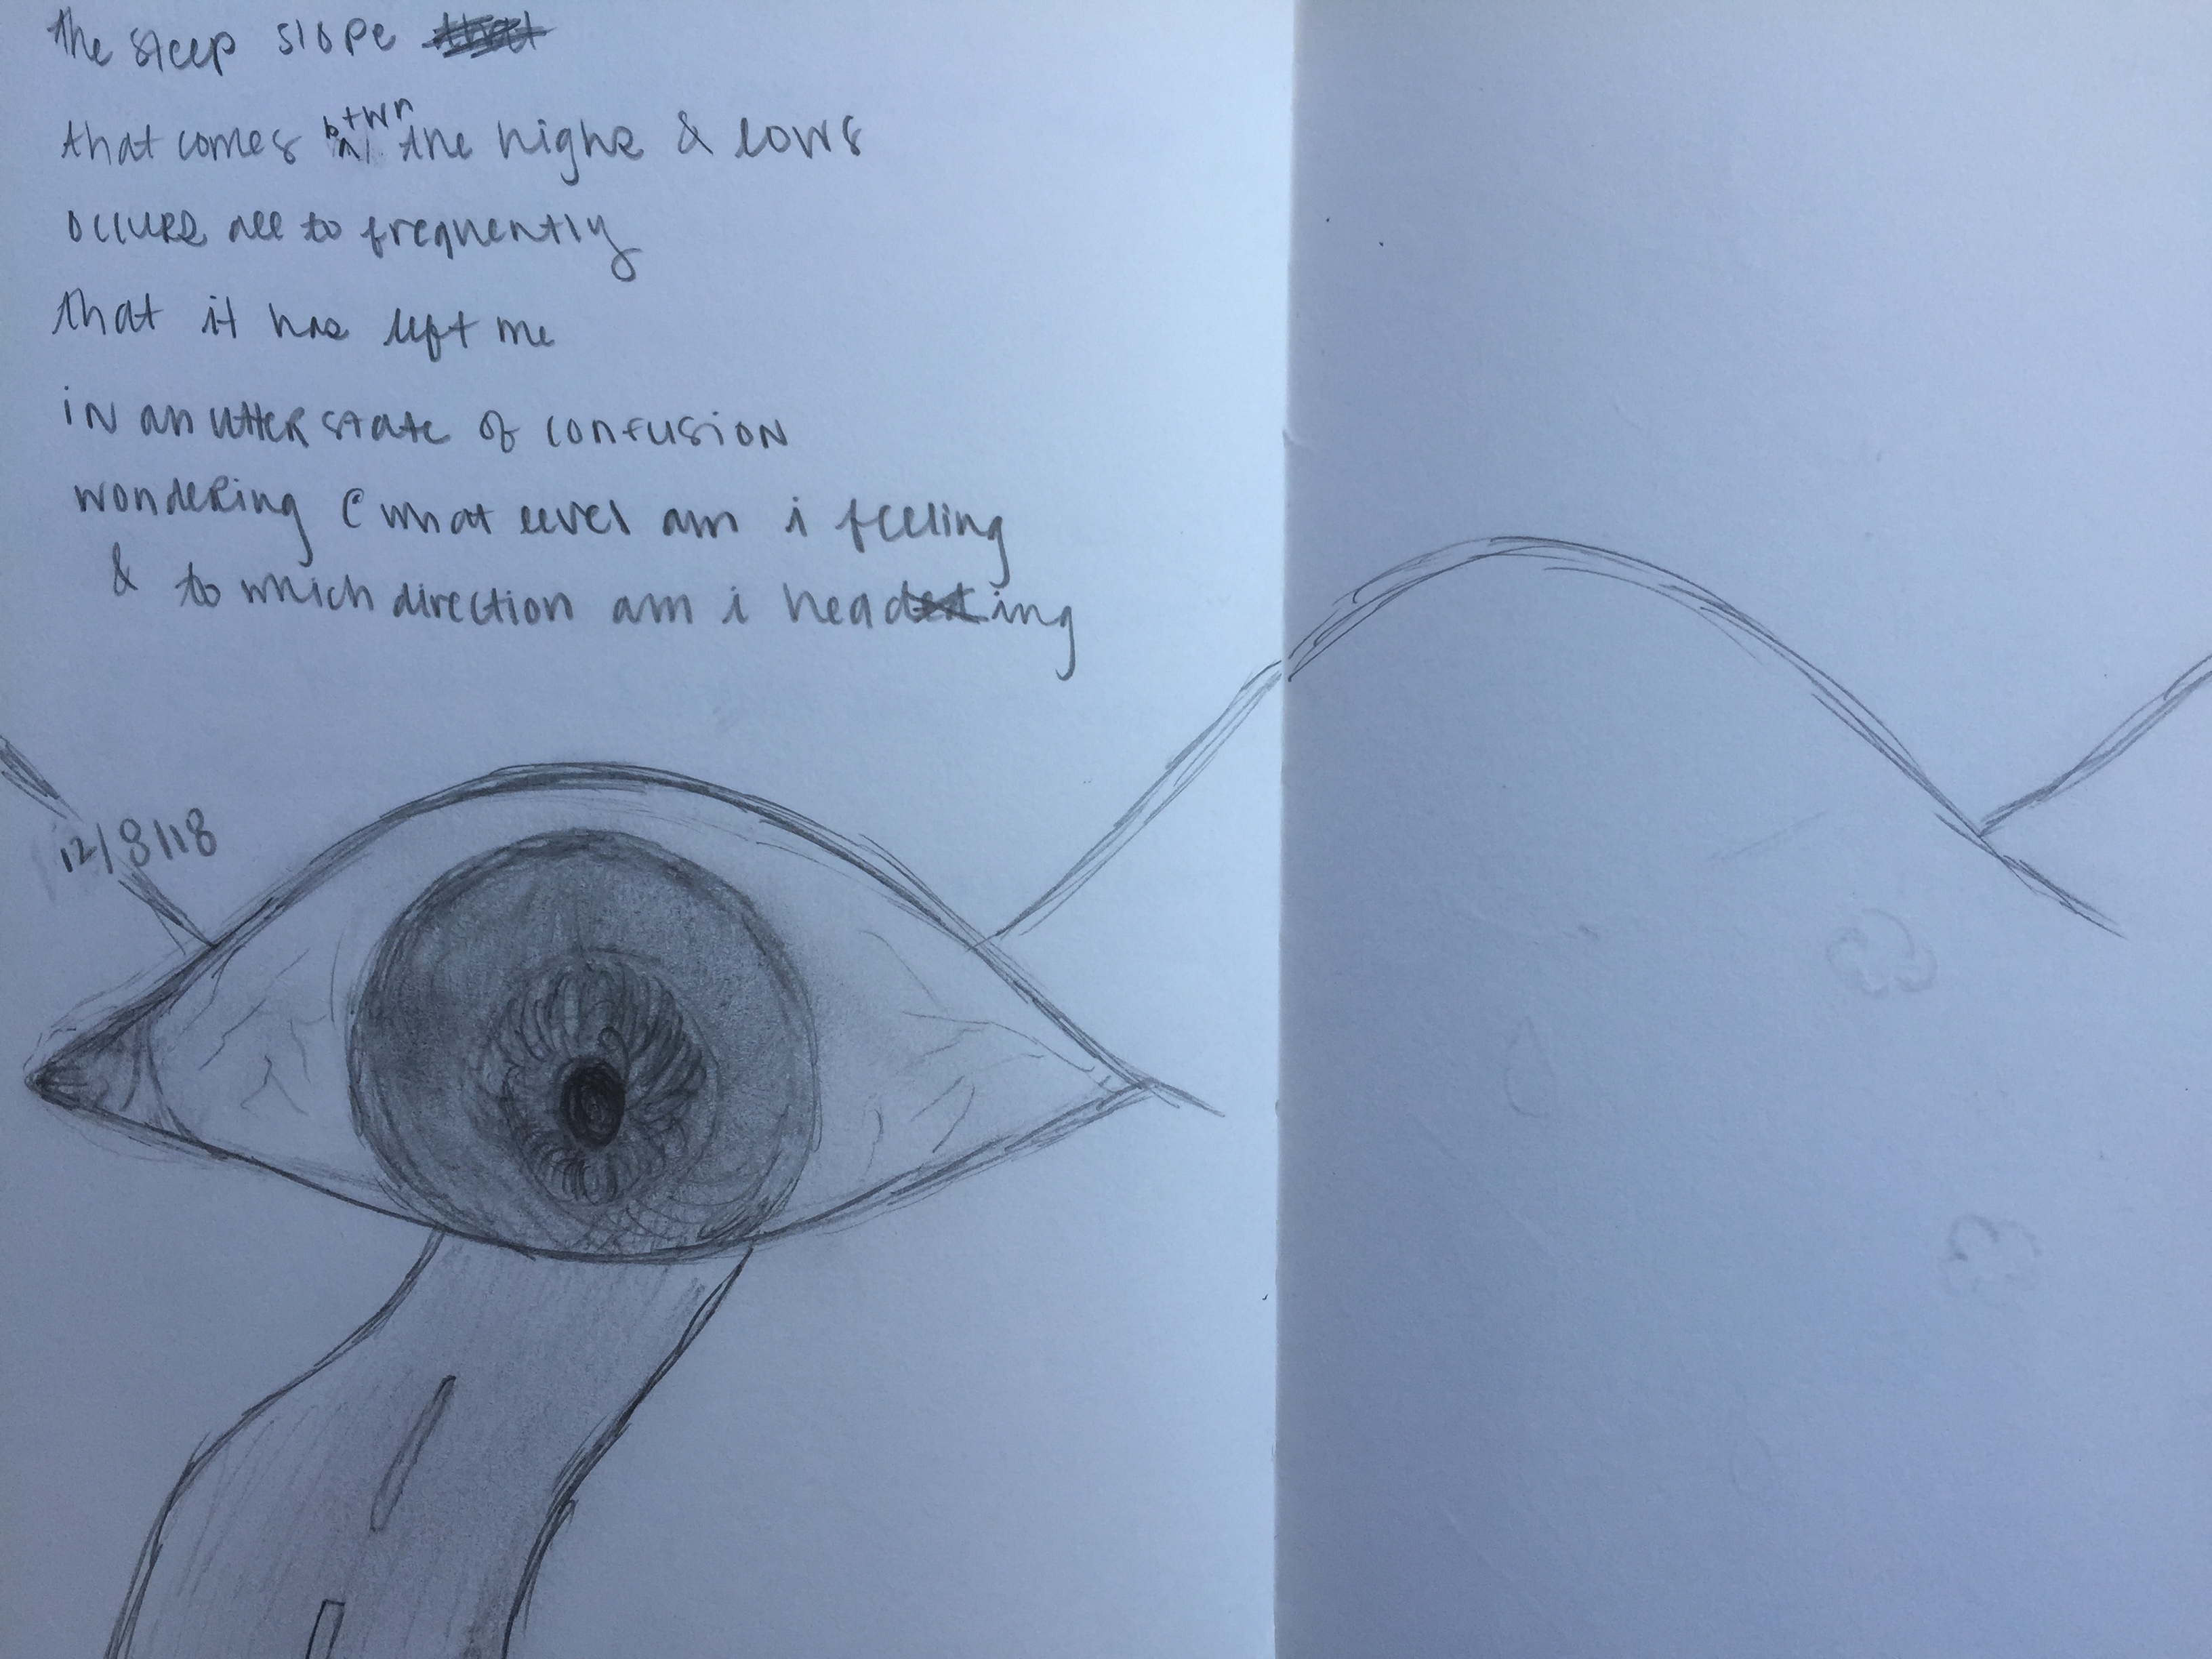 the steep slope
that comes btwn the highs & lows
occurs all to frequently
that it has left me
in an utter state of confusion
wondering @ what level am i feeling
& to which direction am i heading
12/8/18